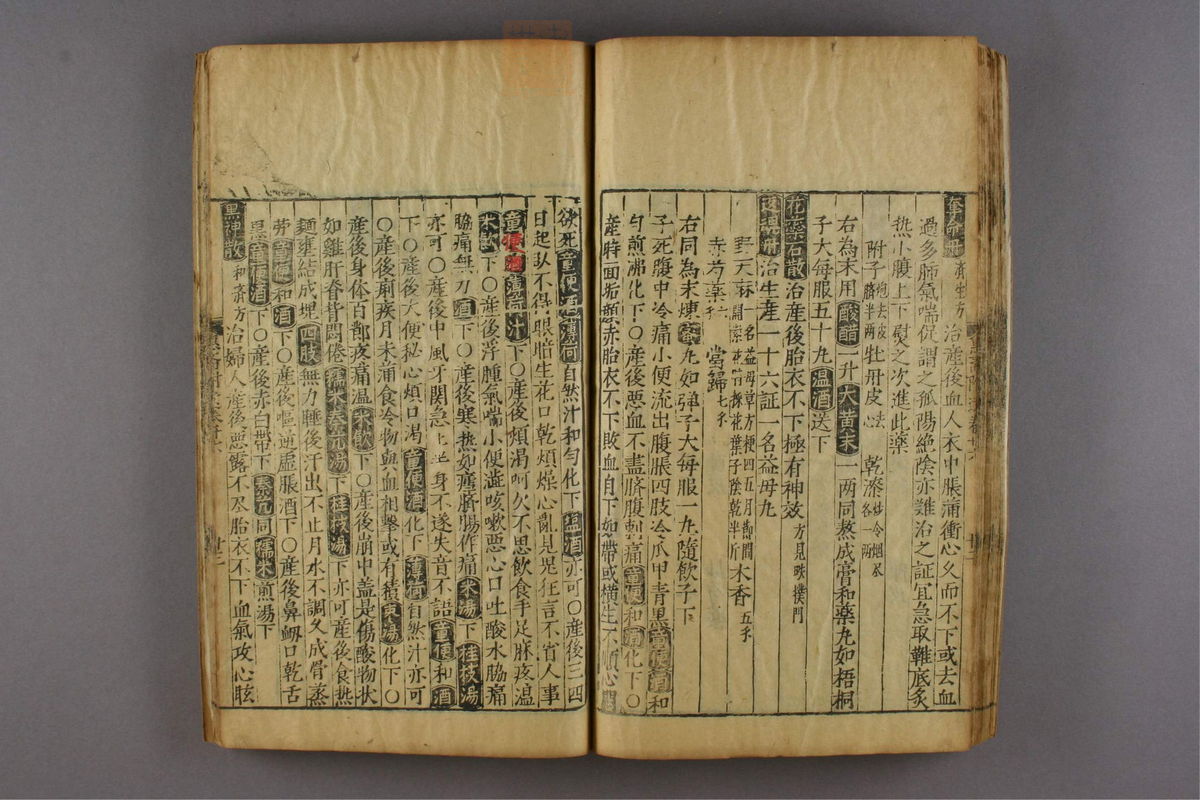 奪命丹 治産後血入衣中脹滿衝心久而不下或去血
過多肺氣喘促謂之孤陽絶陰亦難治之証宜急取鞋底炙
热小腹上下熨之次進此藥
附子 炮去皮臍半两 牡丹皮 去心 乾漆
右為末用酸醋一升大黄末一两同熬成膏和藥丸如梧桐
子大每服五十丸温酒送下
花蘂石散 治産後胎衣不下極有神效 方見 門
治生産一十六証一名益母丸
野天麻 一名益母草方梗四五月 間開紫花 花葉子陰乾半斤 木香 五
赤芍藥 六 當歸 七
右同為末煉蜜丸如弹子大每服一丸隨飲子下
子死腹中冷痛小便流出腹脹四肢冷爪甲青黑童便酒和
匀煎沸化下〇産後惡血不盡臍腹刺痛童便和酒化下〇
産時面垢顔赤胎衣不下敗血自下如帶或横生不順心悶
欲死童便酒薄荷自然汁和匀化下塩酒亦可〇産後三四
日起臥不得眼暗生花口乾煩燥心亂見鬼狂言不省人事
童便酒薄荷汁下〇産後煩渴呵欠不思飲食手足麻疼温
米飲下〇産後浮腫氣喘小便澁咳嗽惡心口吐酸水脇痛
脇痛無力酒下〇産後寒热如瘧臍腸作痛米湯下桂枝湯
亦可〇産後中風牙関急 身不遂失音不語童便和酒
下〇産後大便秘心煩口渴童便酒化下薄荷自然汁亦可
〇産後痢疾月未滿食冷物血血相擊或有積棗湯化下〇
産後身体百節疼痛温米飲下〇産後崩中盖是傷酸物状
如雞肝脊背悶倦糯米秦艽湯下桂枝湯下亦可産後食热
麵壅結成塊四肢無力睡後汗出不止月水不調久成骨蒸
劳童便和酒下〇産後嘔逆虚脹酒下〇産後鼻衂口乾舌
黒童便酒下〇産後赤白帶下秦艽同糯米煎湯下
黒神散 和斎方 治婦人産後惡露不尽胎衣不下血氣攻心眩